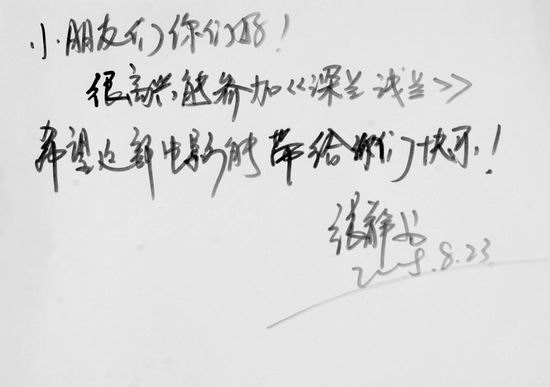 小朋友们你们好！
很高兴，能参加《深兰浅兰》
希望这部电影能带给你们快乐！
张静
2005.8.23